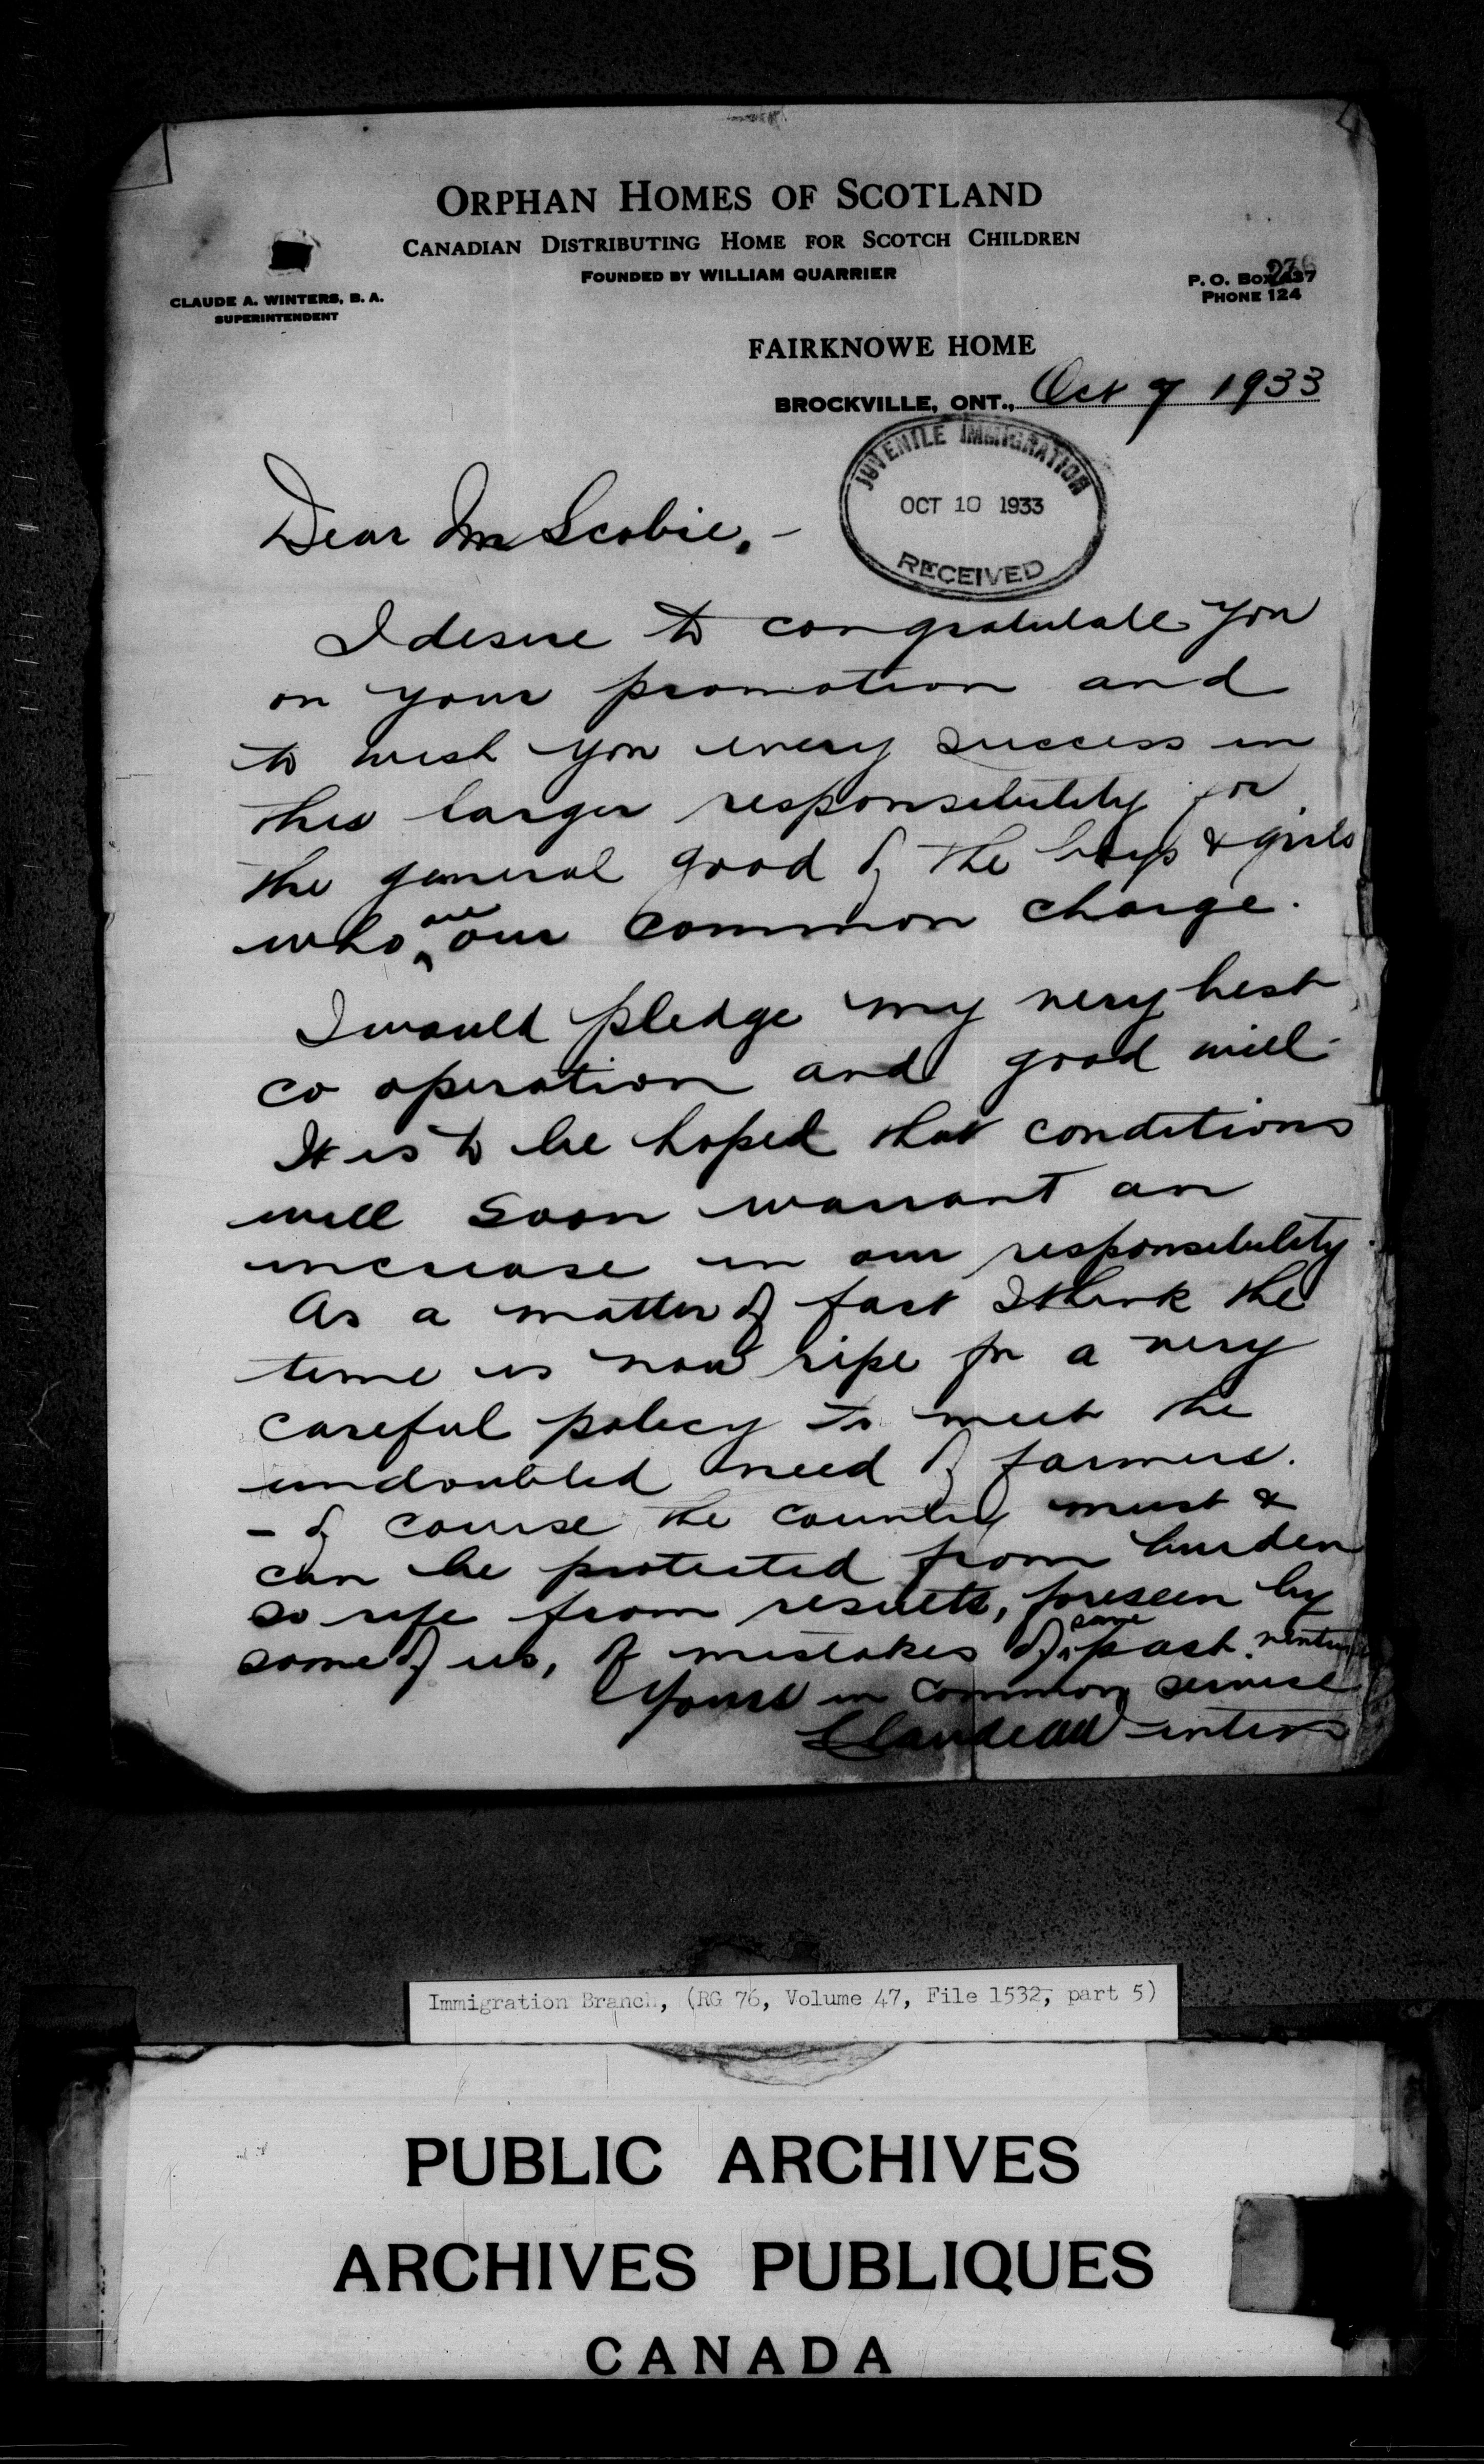 ORPHAN HOMES OF SCOTLAND
CANADIAN DISTRIBUTING HOME FOR SCOTCH CHILDREN
FOUNDED BY WILLIAM QUARRIER
CLAUDE A. WINTERS, B. A.
SUPERINTENDENT
236
P. O. BOX 437
PHONE 124
FAIRKNOWE HOME
BROCKVILLE, ONT., Oct 7 1933
JUVENILE IMMIGRATION
OCT 10 1933
RECEIVED
Dear Mr Scobie, -
I desire to congratulate you
on your promotion and
to wish you every success in
this larger responsibility for
the general good of the boys & girls
who are our common charge.
I would pledge my very best
co operation and good will
It is to be hoped that conditions
will soon warrant an
increase in our responsibility.
As a matter of fact I think the
time is now ripe for a very
careful policy to meet the
undoubted need of farmers.
- of course the country must &
can be protected from burden
so rife from results, foreseen by
some of us, of mistakes of some past
Yours in common service
Claude A Winters
Immigration Branch, (RG 76, Volume 47, File 1532, part 5)
PUBLIC ARCHIVES
ARCHIVES PUBLIQUES
CANADA